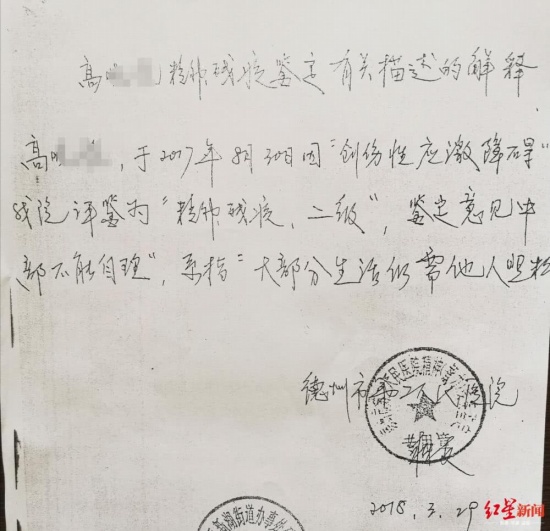 高 精神残疾鉴定有关描述的解释
高 ，于2017年8月30日因"创伤性应激障碍"
我院评鉴为"精神残疾、二级"，鉴定意见中
部不能自理"，系指"大部分生活仍需他人照料
德州市第二人民医院
2018.3.29
新湖街道办事处
红星新闻